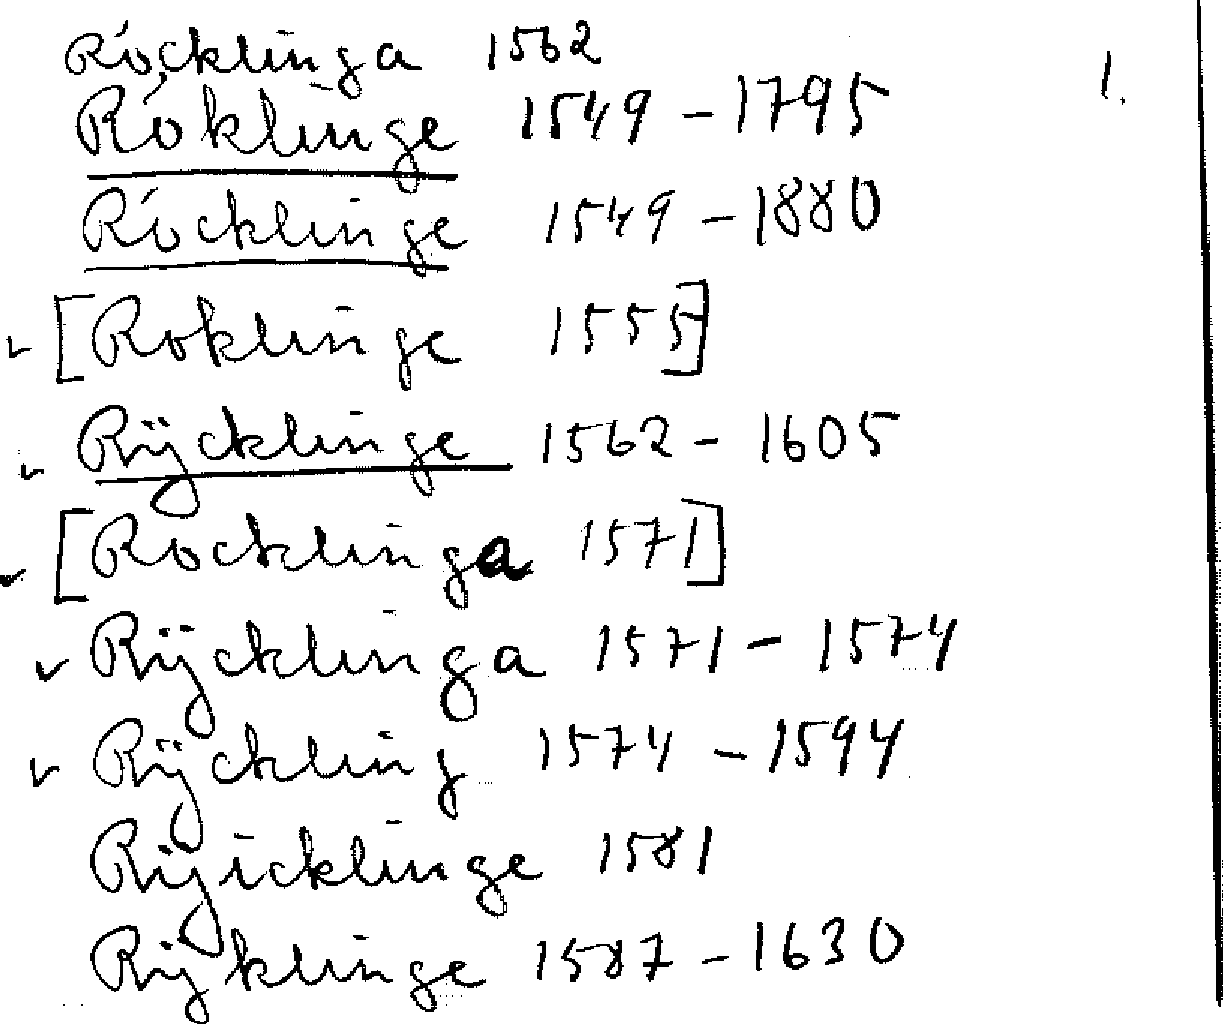 Rócklinga 1562
1.
Róklinge 1549 – 1795
Rócklinge 1549 – 1880
[Roklinge 1555]
Rÿcklinge 1562 – 1605
[Rocklinga 1571]
Rÿcklinga 1571 – 1574
Rÿckling 1574 – 1594
Rÿicklinge 1581
Rÿklinge 1587 – 1630